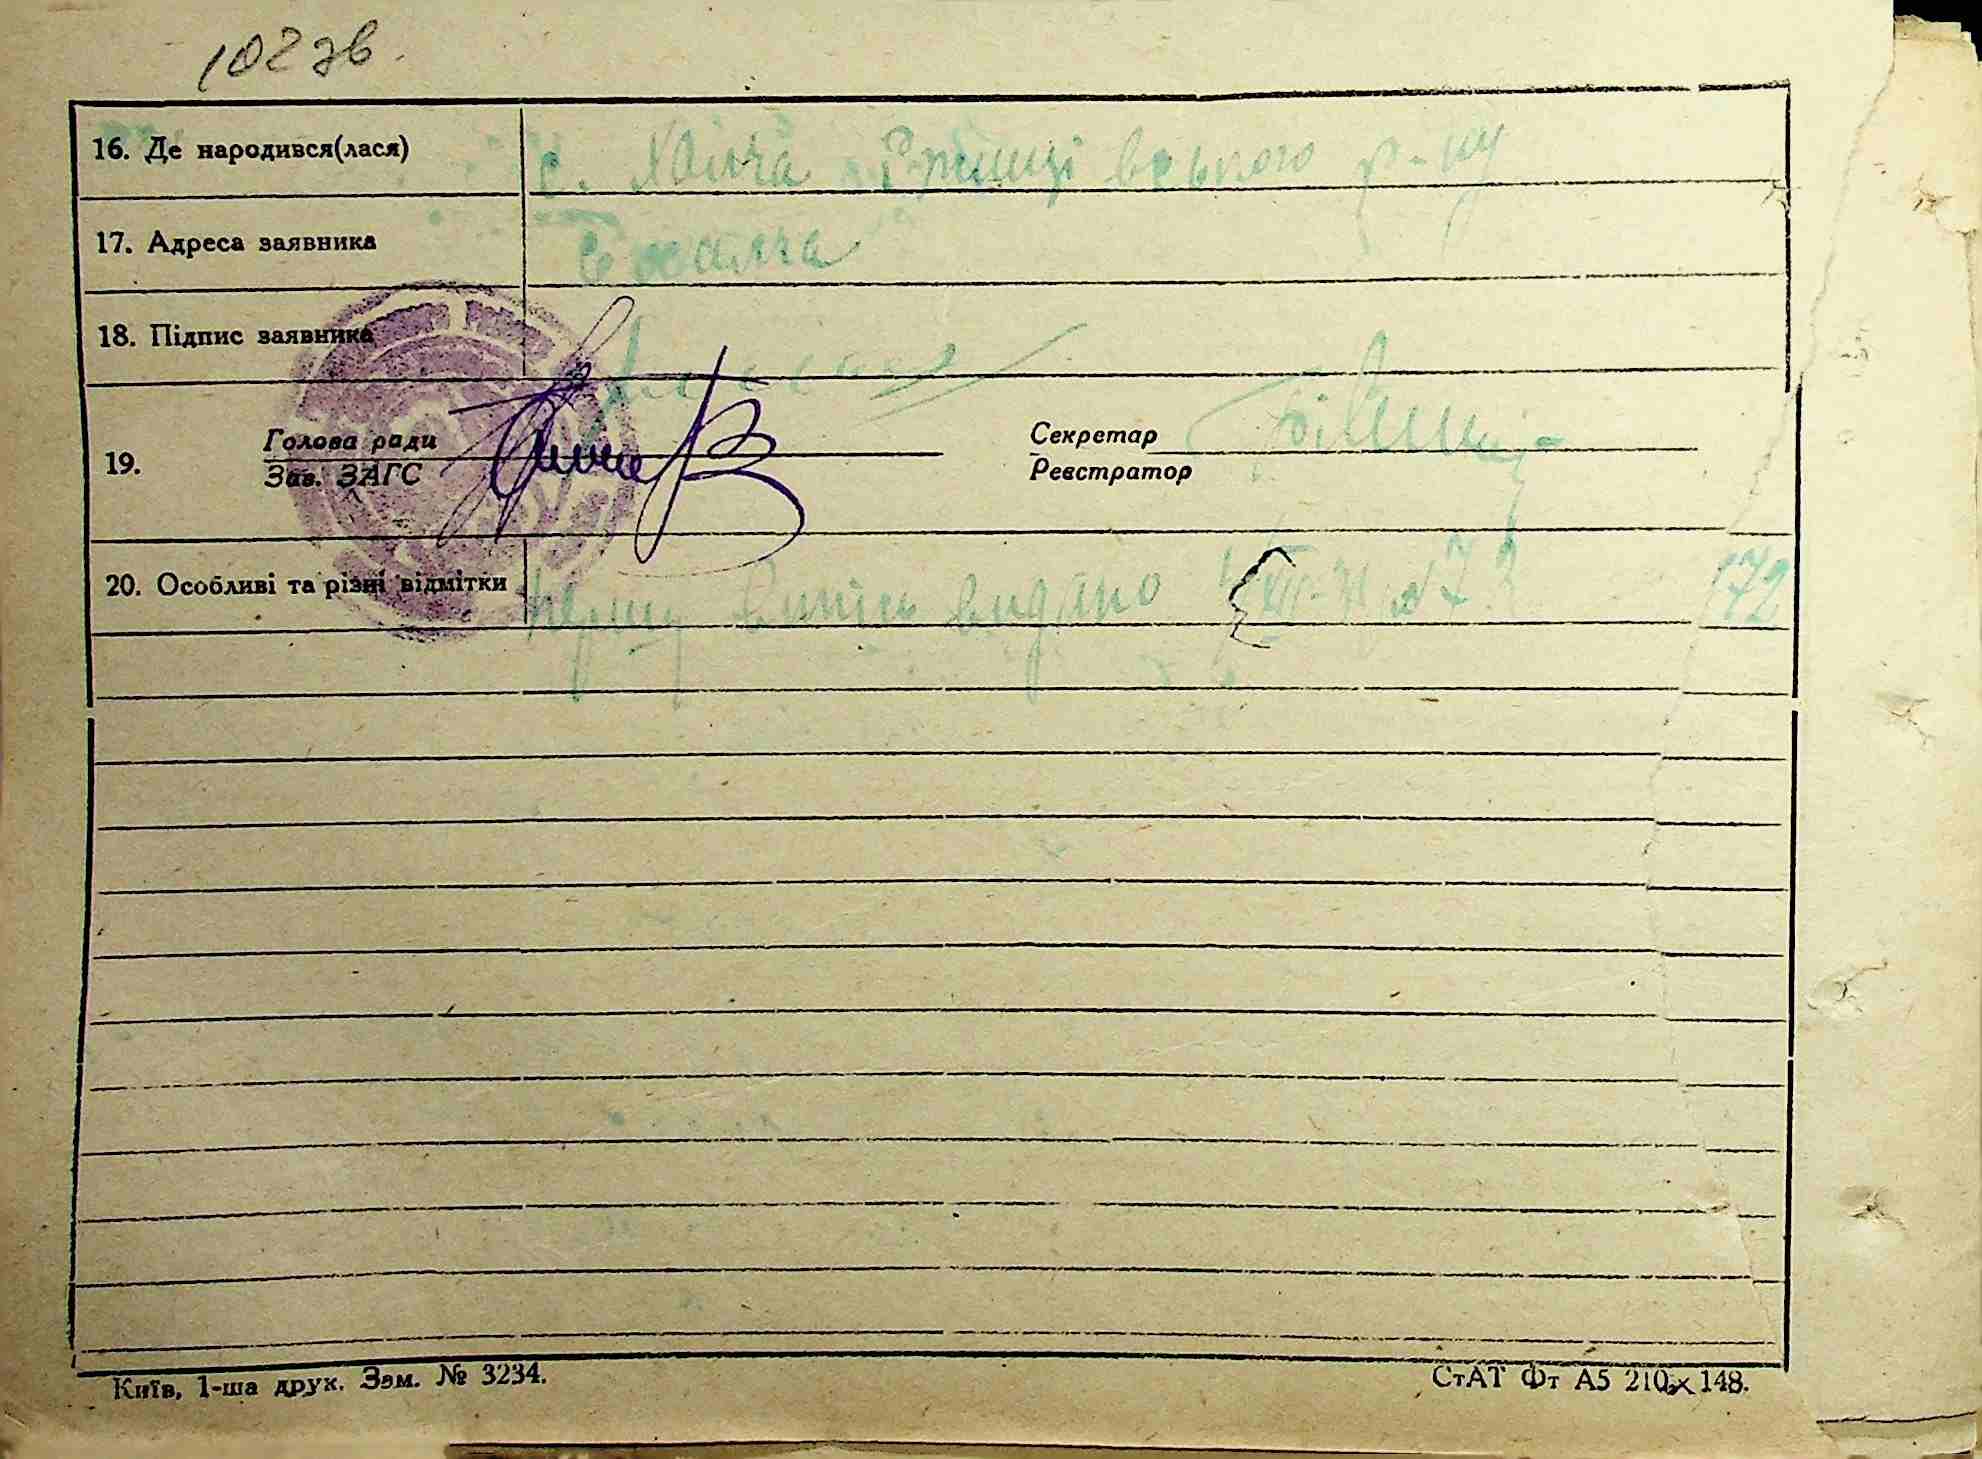 102 зв.
16. Де народився(лася) с. Халча Ржищівського р-ну
17. Адреса заявника с Халча
18. Підпис заявника
19. Голова ради Секретар
Зав. ЗАГС Реєстратор
20. Особливі та різні відмітки першу випись видано 172
Київ, 1-ша друк. Зам. № 3234. СтАТ Фт А5 210×148.